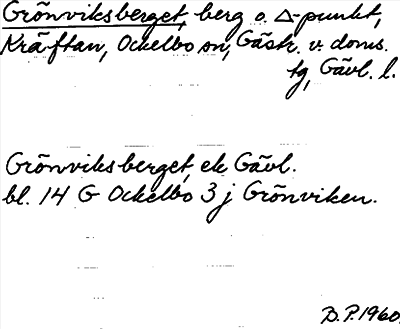 Grönviksberget, berg o. △-punkt,
Kräftan, Ockelbo sn, Gästr. v. doms.
tg, Gävl. l.
Grönviksberget, ek Gävl.
bl. 14 G Ockelbo 3 j Grönviken.
D.P. 1960.